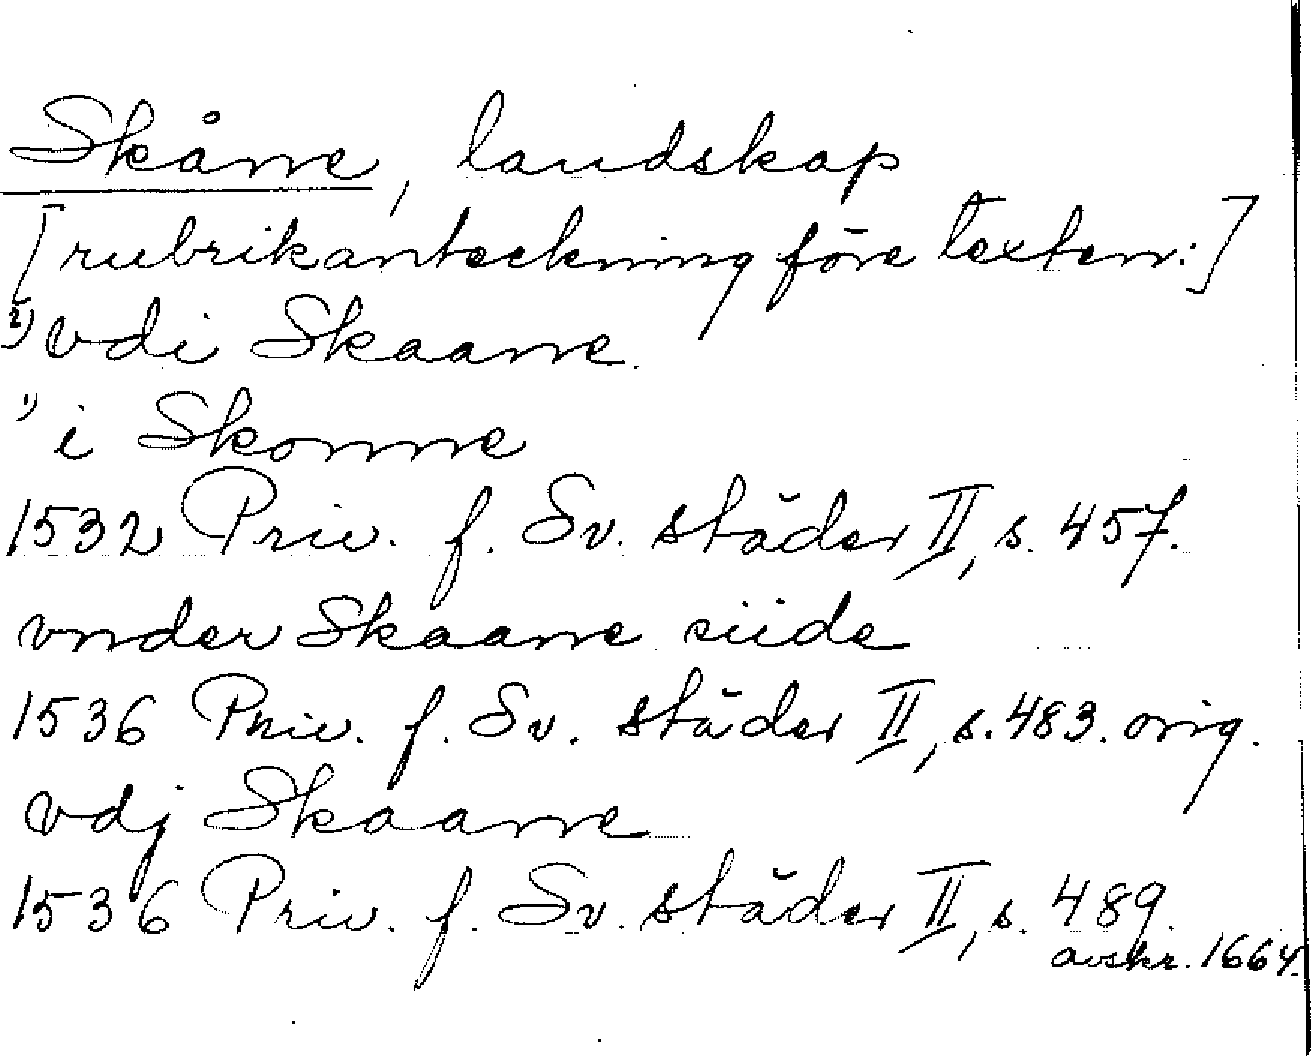 Skåne, landskap
[rubrikanteckning före texten:]
2) vdi Skaane.
1) i Skonne
1532 Priv. f. Sv. städer II, s. 457.
vnder Skaane siide
1536 Priv. f. Sv. städer II, s. 483. orig.
vdj Skaane
1536 Priv. f. Sv. städer II, s. 489.
avskr. 1664.